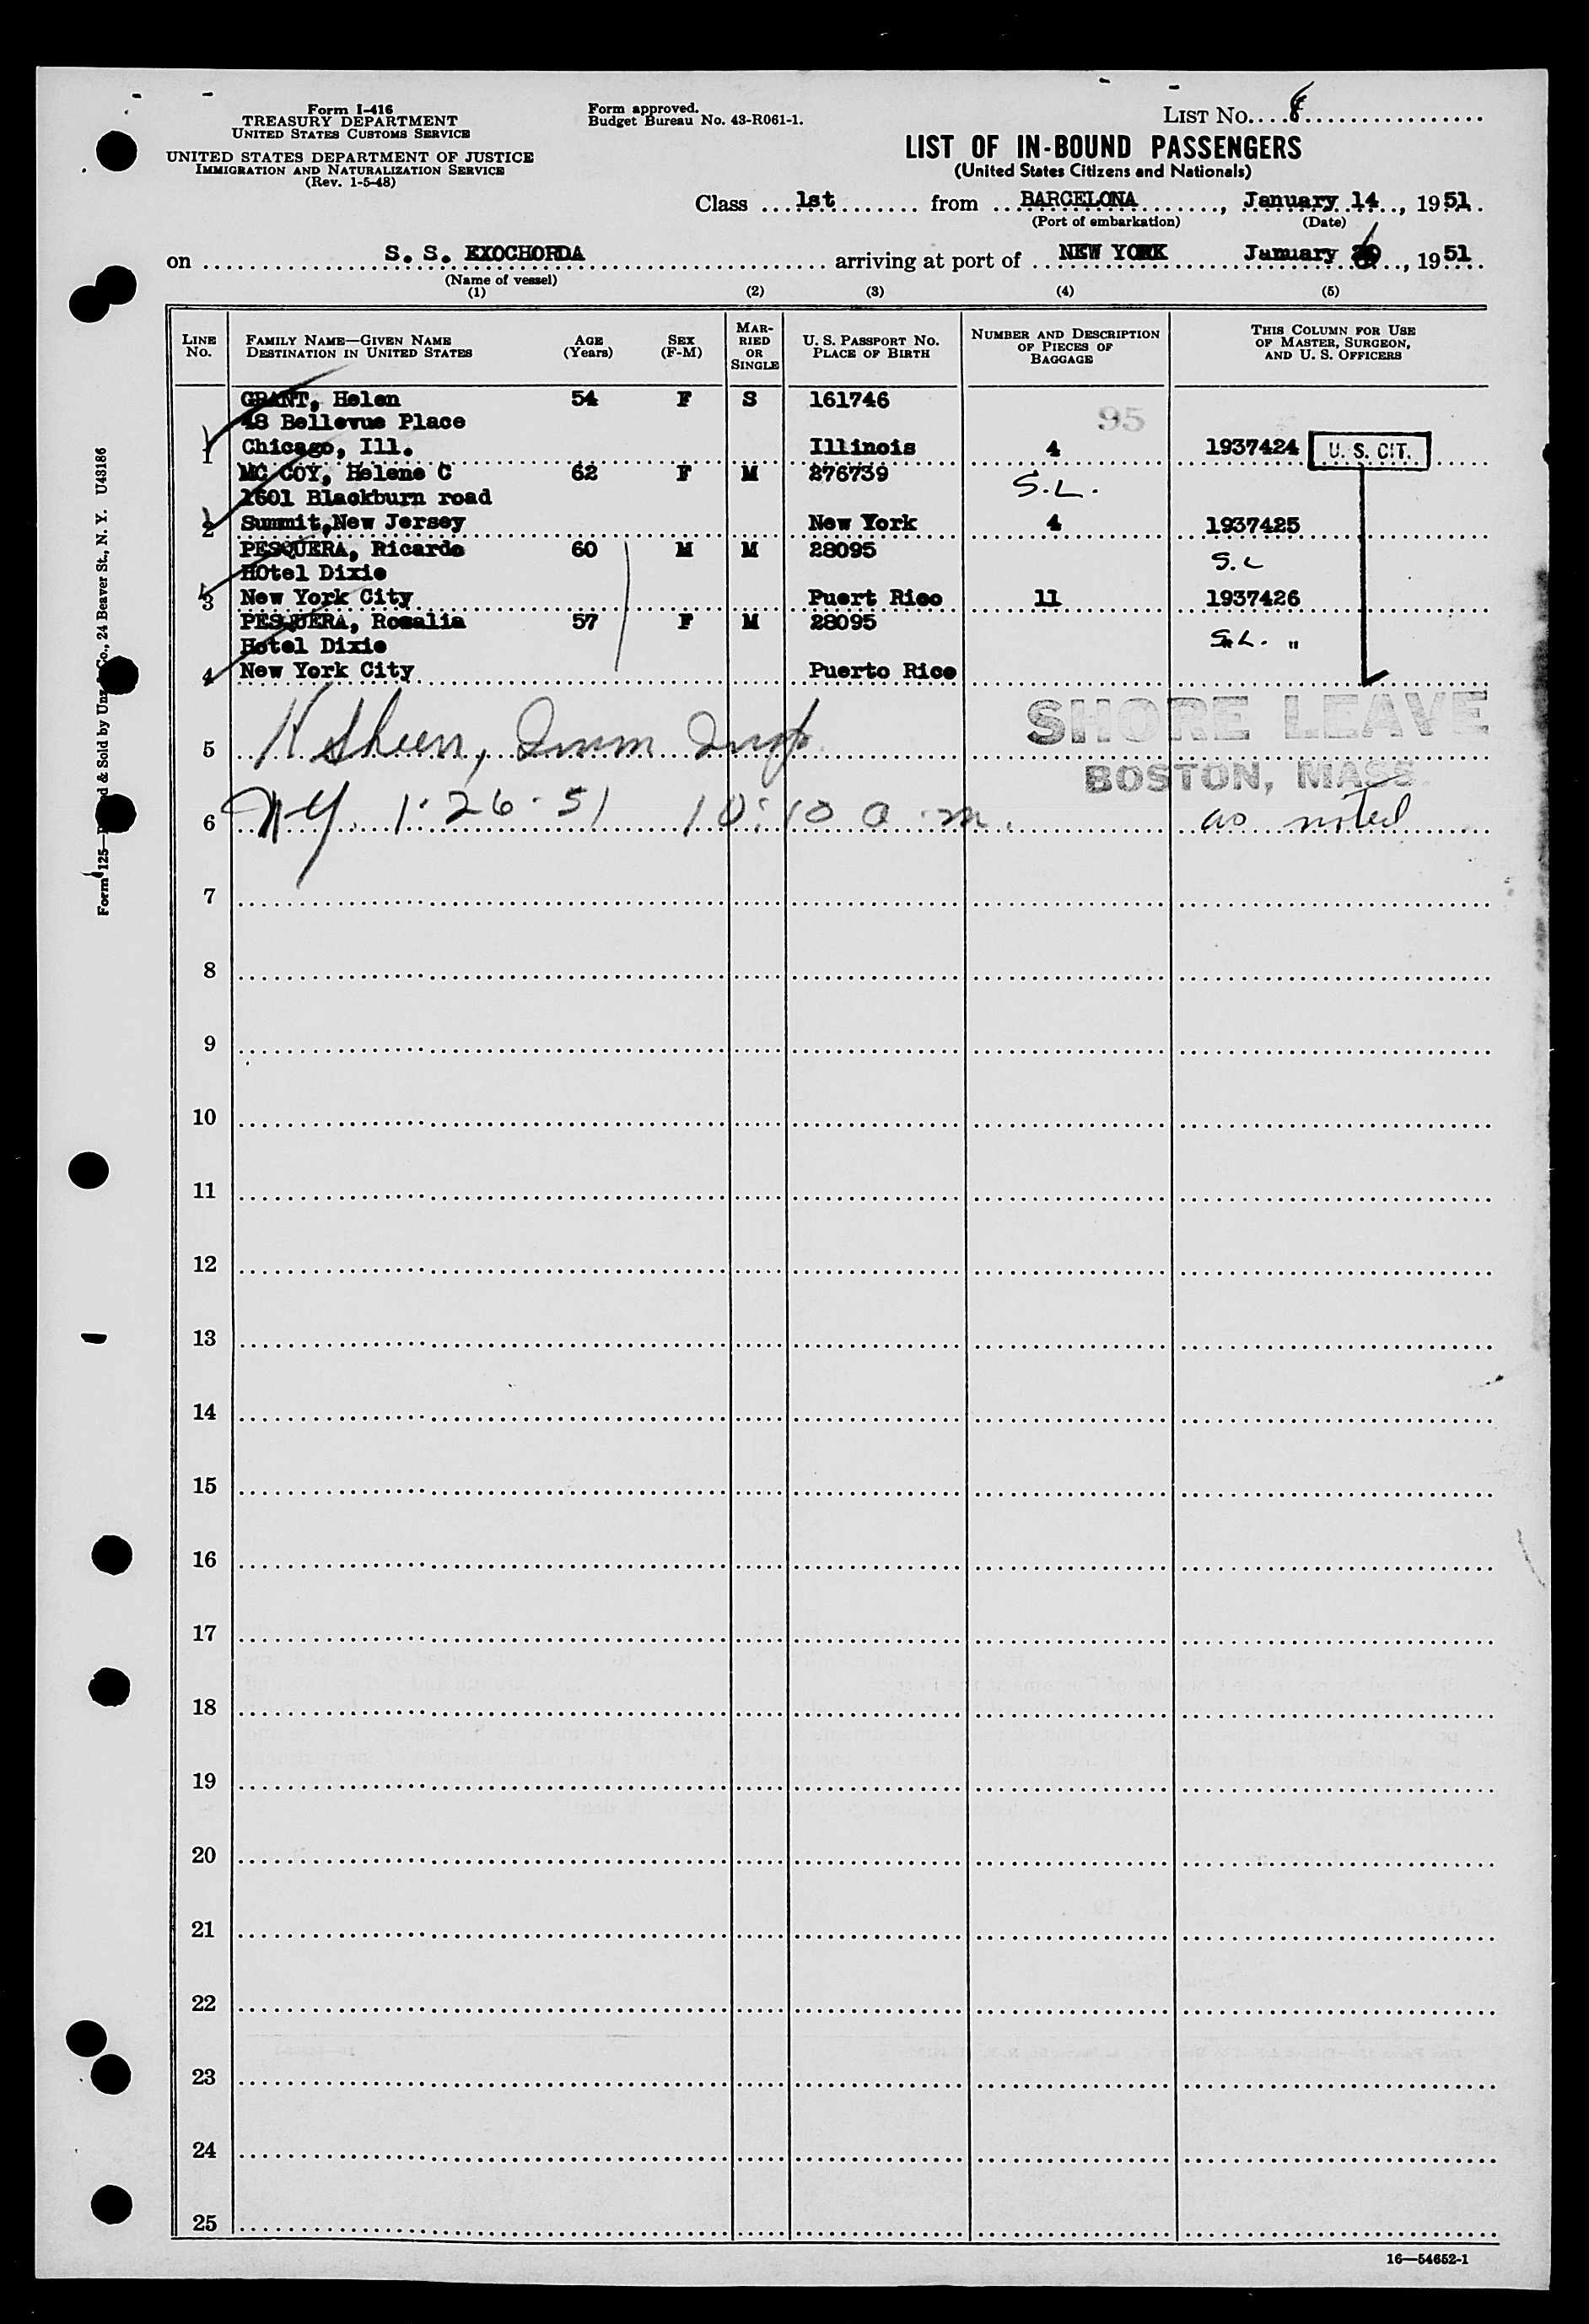 Form I-416
TREASURY DEPARTMENT
UNITED STATES CUSTOMS SERVICE
UNITED STATES DEPARTMENT OF JUSTICE
IMMIGRATION AND NATURALIZATION SERVICE
(Rev. 1-5-48)
Form approved.
Budget Bureau No. 43-R061-1.
LIST No. 8
LIST OF IN-BOUND PASSENGERS
(United States Citizens and Nationals)
Class 1st from BARCELONA, January 14, 1951
(Port of embarkation) (Date)
on S. S. EXOCHORDA arriving at port of NEW YORK January, 1951
(Name of vessel)
(1) (2) (3) (4) (5)
LINE No. FAMILY NAME—GIVEN NAME DESTINATION IN UNITED STATES AGE (Years) SEX (F-M) MARRIED OR SINGLE U. S. PASSPORT NO. PLACE OF BIRTH NUMBER AND DESCRIPTION OF PIECES OF BAGGAGE THIS COLUMN FOR USE OF MASTER, SURGEON, AND U. S. OFFICERS
GRANT, Helen 54 F S 161746
48 Bellevue Place 95
1 Chicago, Ill. Illinois 4 1937424 U. S. CIT.
MC COY, Helene C 62 F M 276739
1601 Blackburn road S.L.
2 Summit, New Jersey New York 4 1937425
PESQUERA, Ricardo 60 M M 28095
HOtel Dixie S.L
3 New York City Puert Rico 11 1937426
PESQUERA, Rosalia 57 F M 28095
Hotel Dixie S.L. "
4 New York City Puerto Rico
SHORE LEAVE
5 K Sheen, Imm Insp
BOSTON, MASS.
6 NY. 1-26-51 10:10 a.m. as noted
7
8
9
10
11
12
13
14
15
16
17
18
19
20
21
22
23
24
25
16—54652-1
Form 125— & Sold by Unz & Co., 24 Beaver St., N. Y. U43186